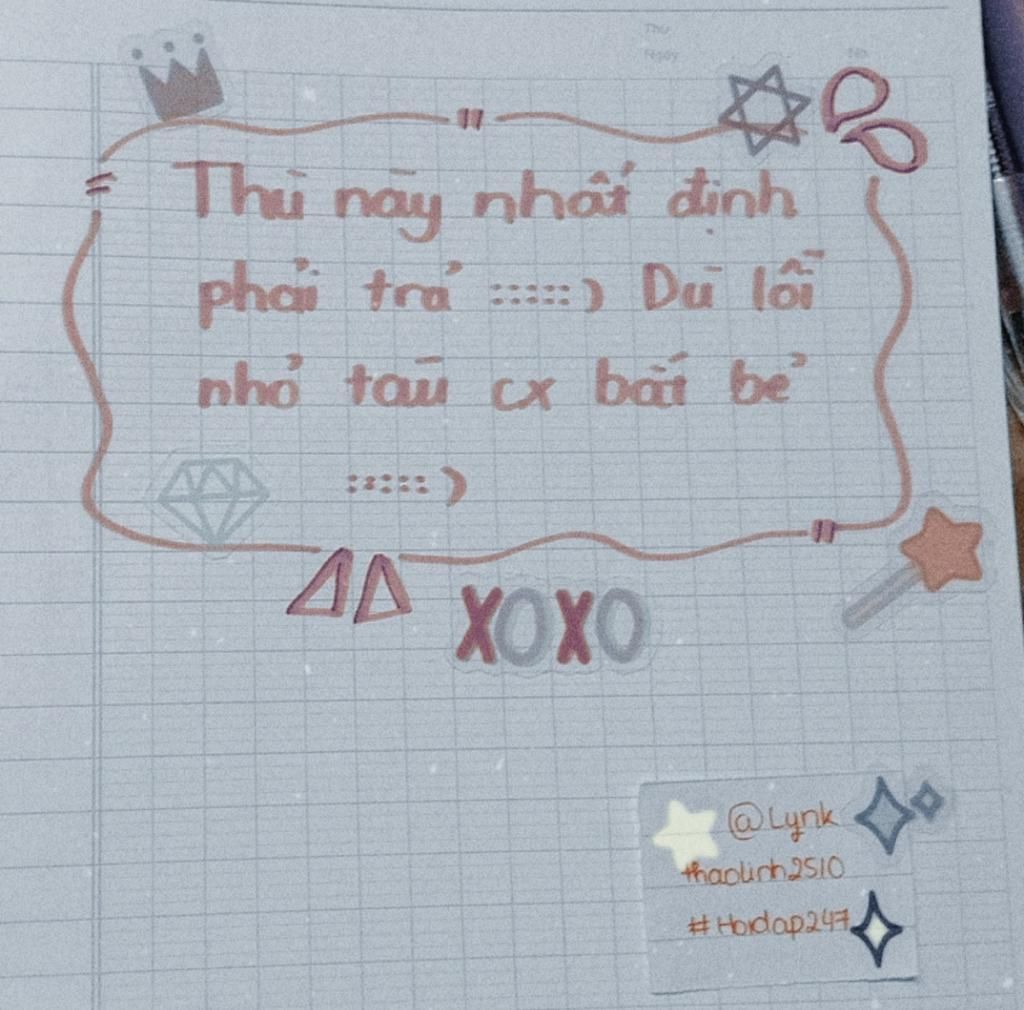 Thứ
Ngày
No.
Thù này nhất định
phải trả :::::) Dù lỗi
nhỏ tau cx bắt bẻ
:::::)
XOXO
@Lynk
thaolinh2510
#Hoidap247